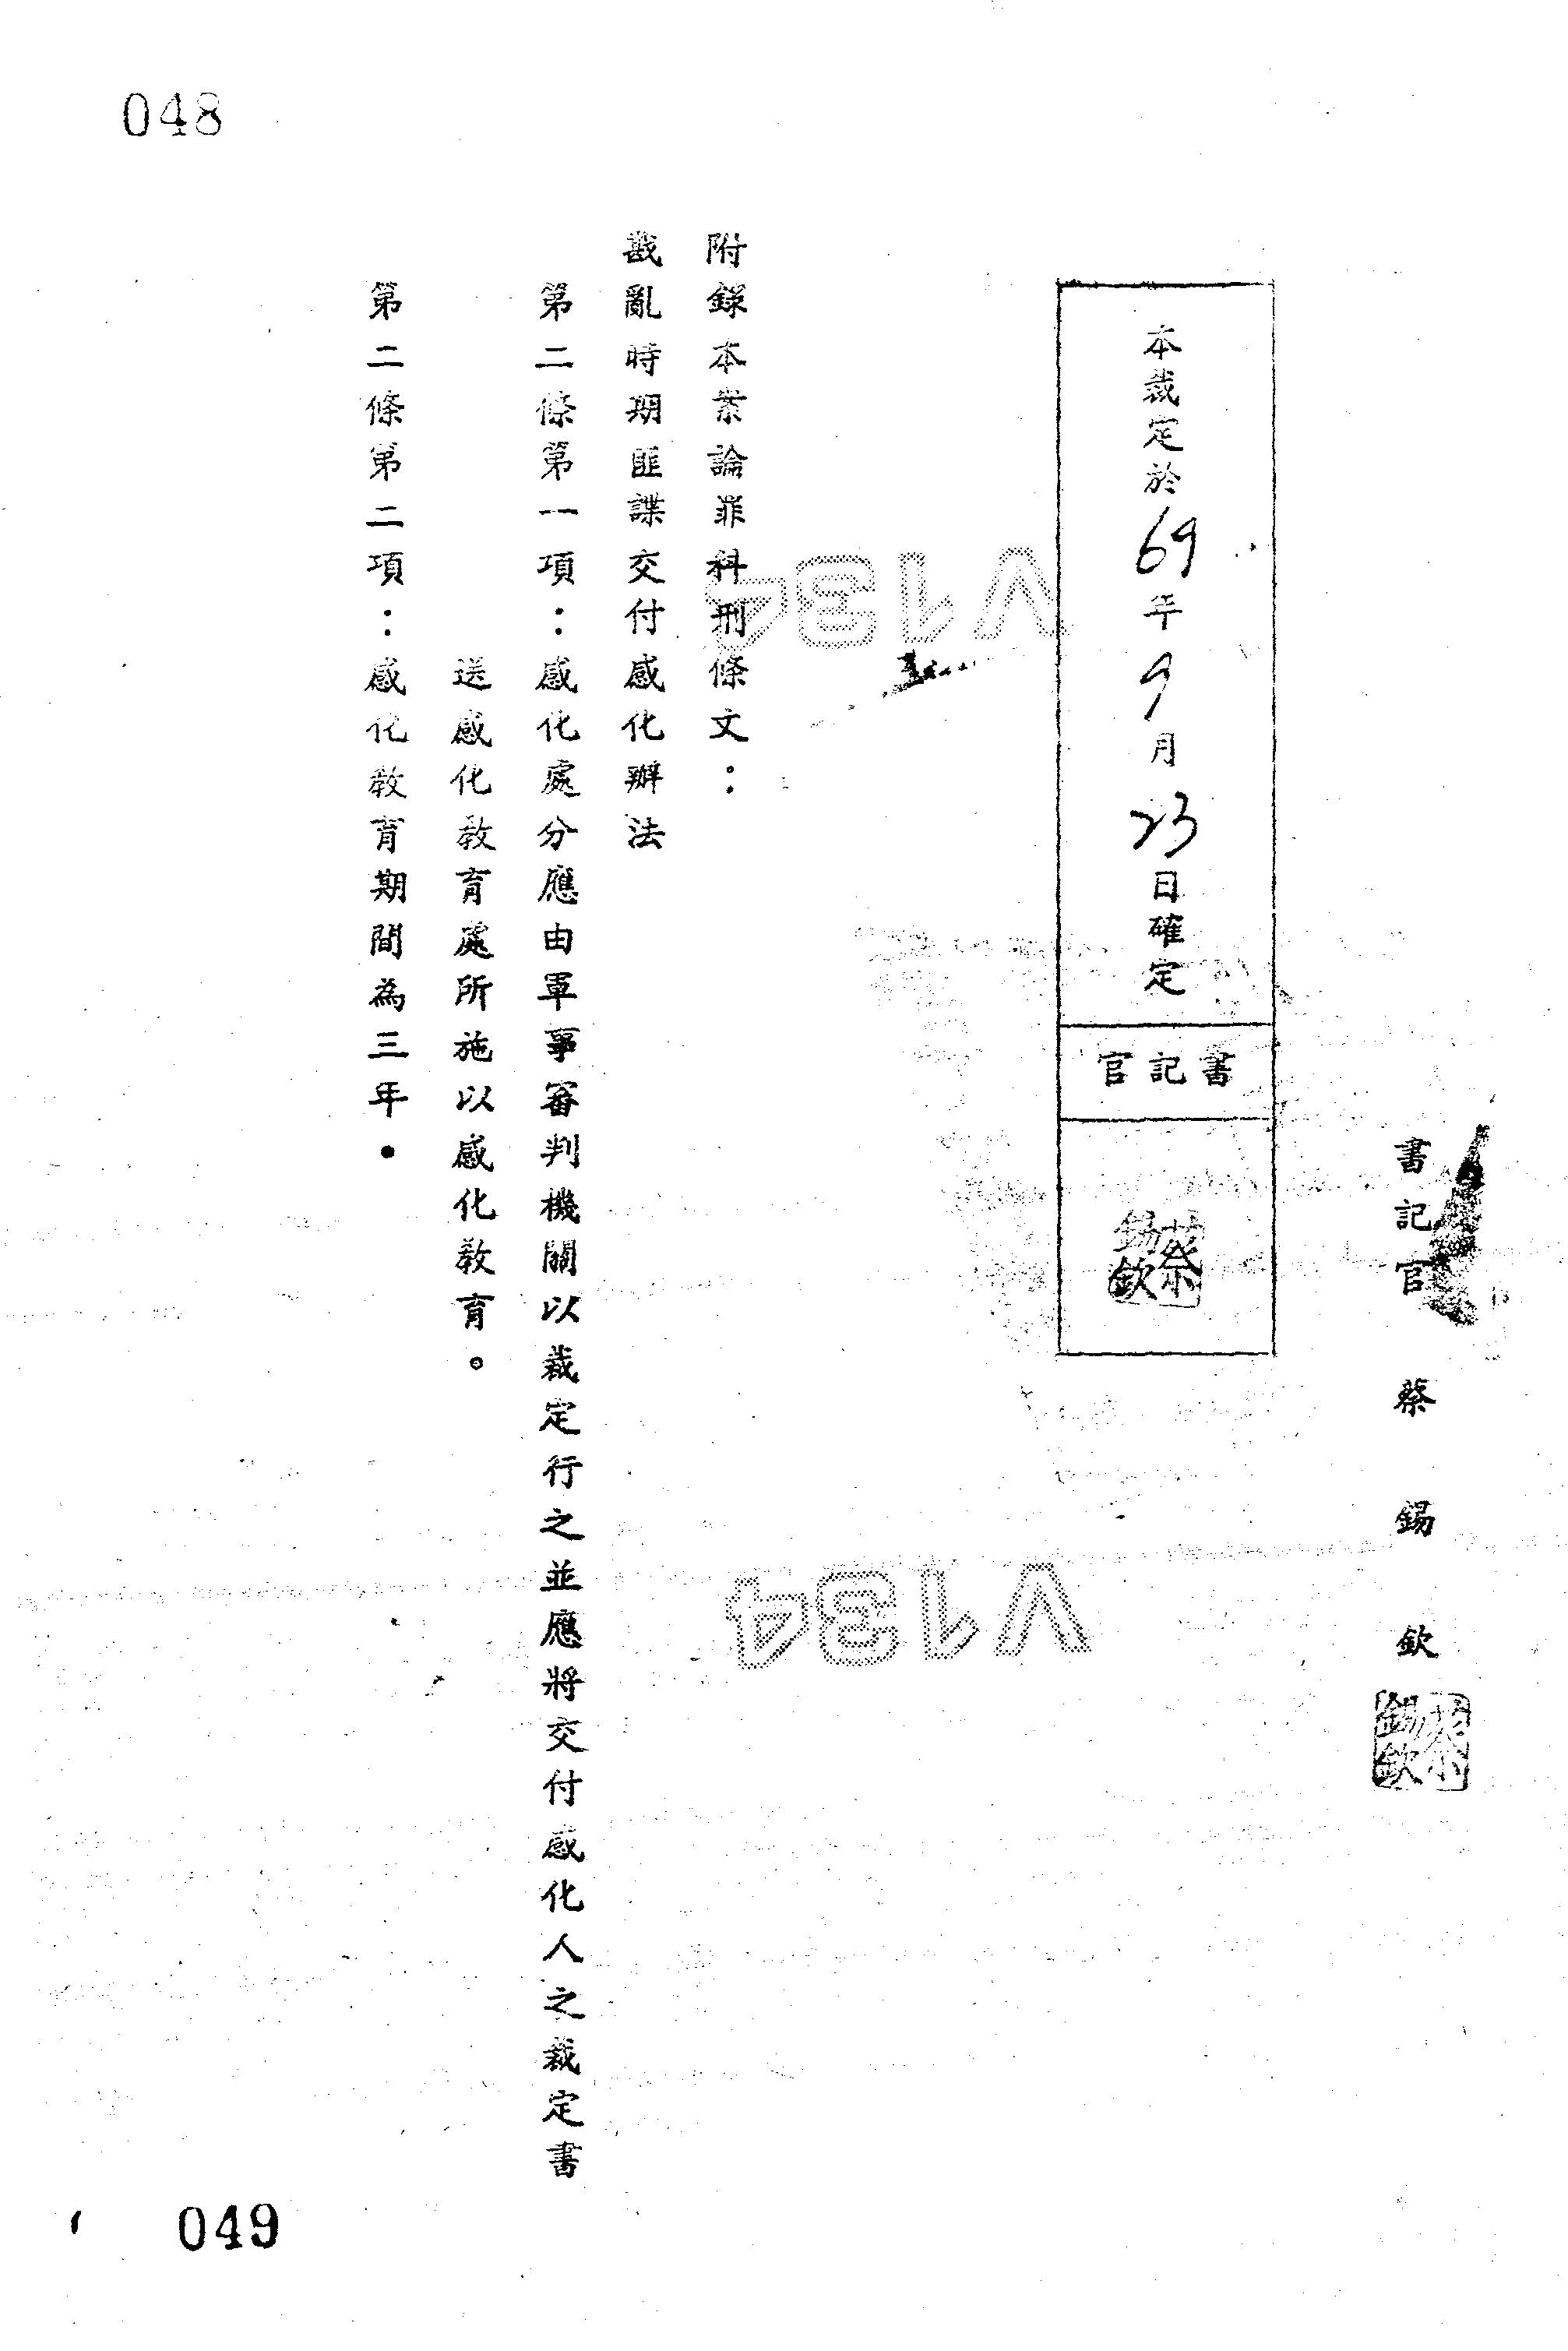 048
書記官 蔡錫欽
蔡錫欽
本裁定於69年9月23日確定
書記官
蔡錫欽
附錄本案論罪科刑條文：
戡亂時期匪諜交付感化辦法
第二條第一項：感化處分應由軍事審判機關以裁定行之並應將交付感化人之裁定書
送感化教育處所施以感化教育。
第二條第二項：感化教育期間為三年。
V134
V134
049